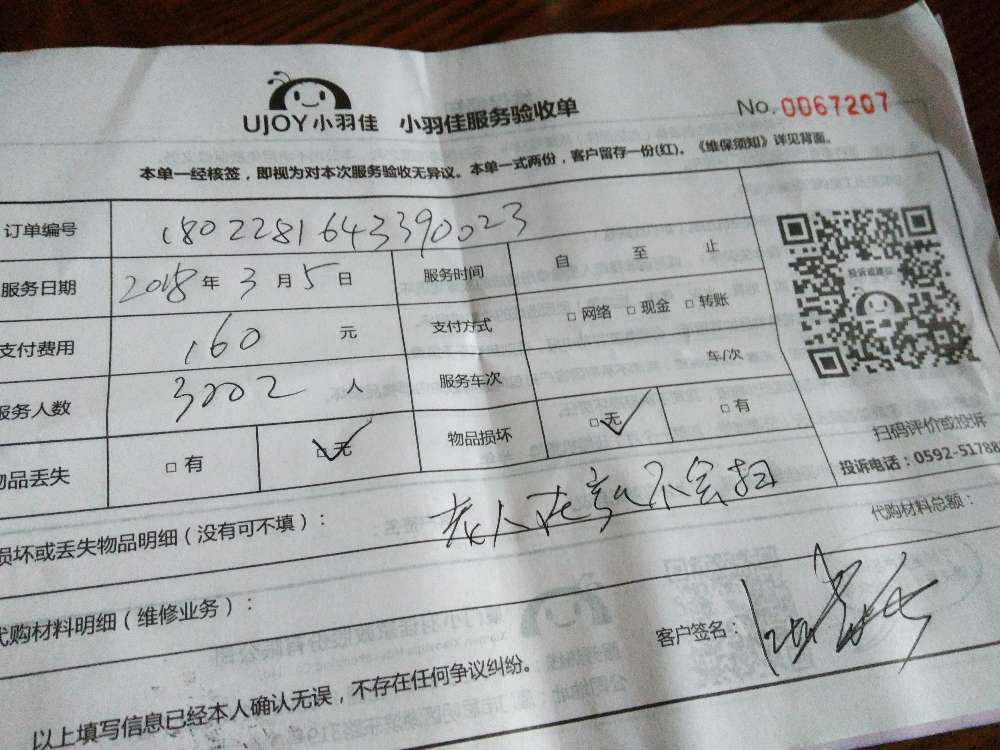 UJOY小羽佳 小羽佳服务验收单 No.0067207
本单一经核签，即视为对本次服务验收无异议。本单一式两份，客户留存一份(红)。《维保须知》详见背面。
订单编号 1802281643390023
服务日期 2018年3月5日 服务时间 自 至 止
支付费用 160 元 支付方式 □网络 □现金 □转账
服务人数 3002 人 服务车次 车/次
物品丢失 □有 □无 物品损坏 □无 □有
投诉或建议
扫码评价或投诉
投诉电话：0592-51788
损坏或丢失物品明细（没有可不填）： 老人在家不会扫
代购材料总额：
代购材料明细（维修业务）：
客户签名：
以上填写信息已经本人确认无误，不存在任何争议纠纷。